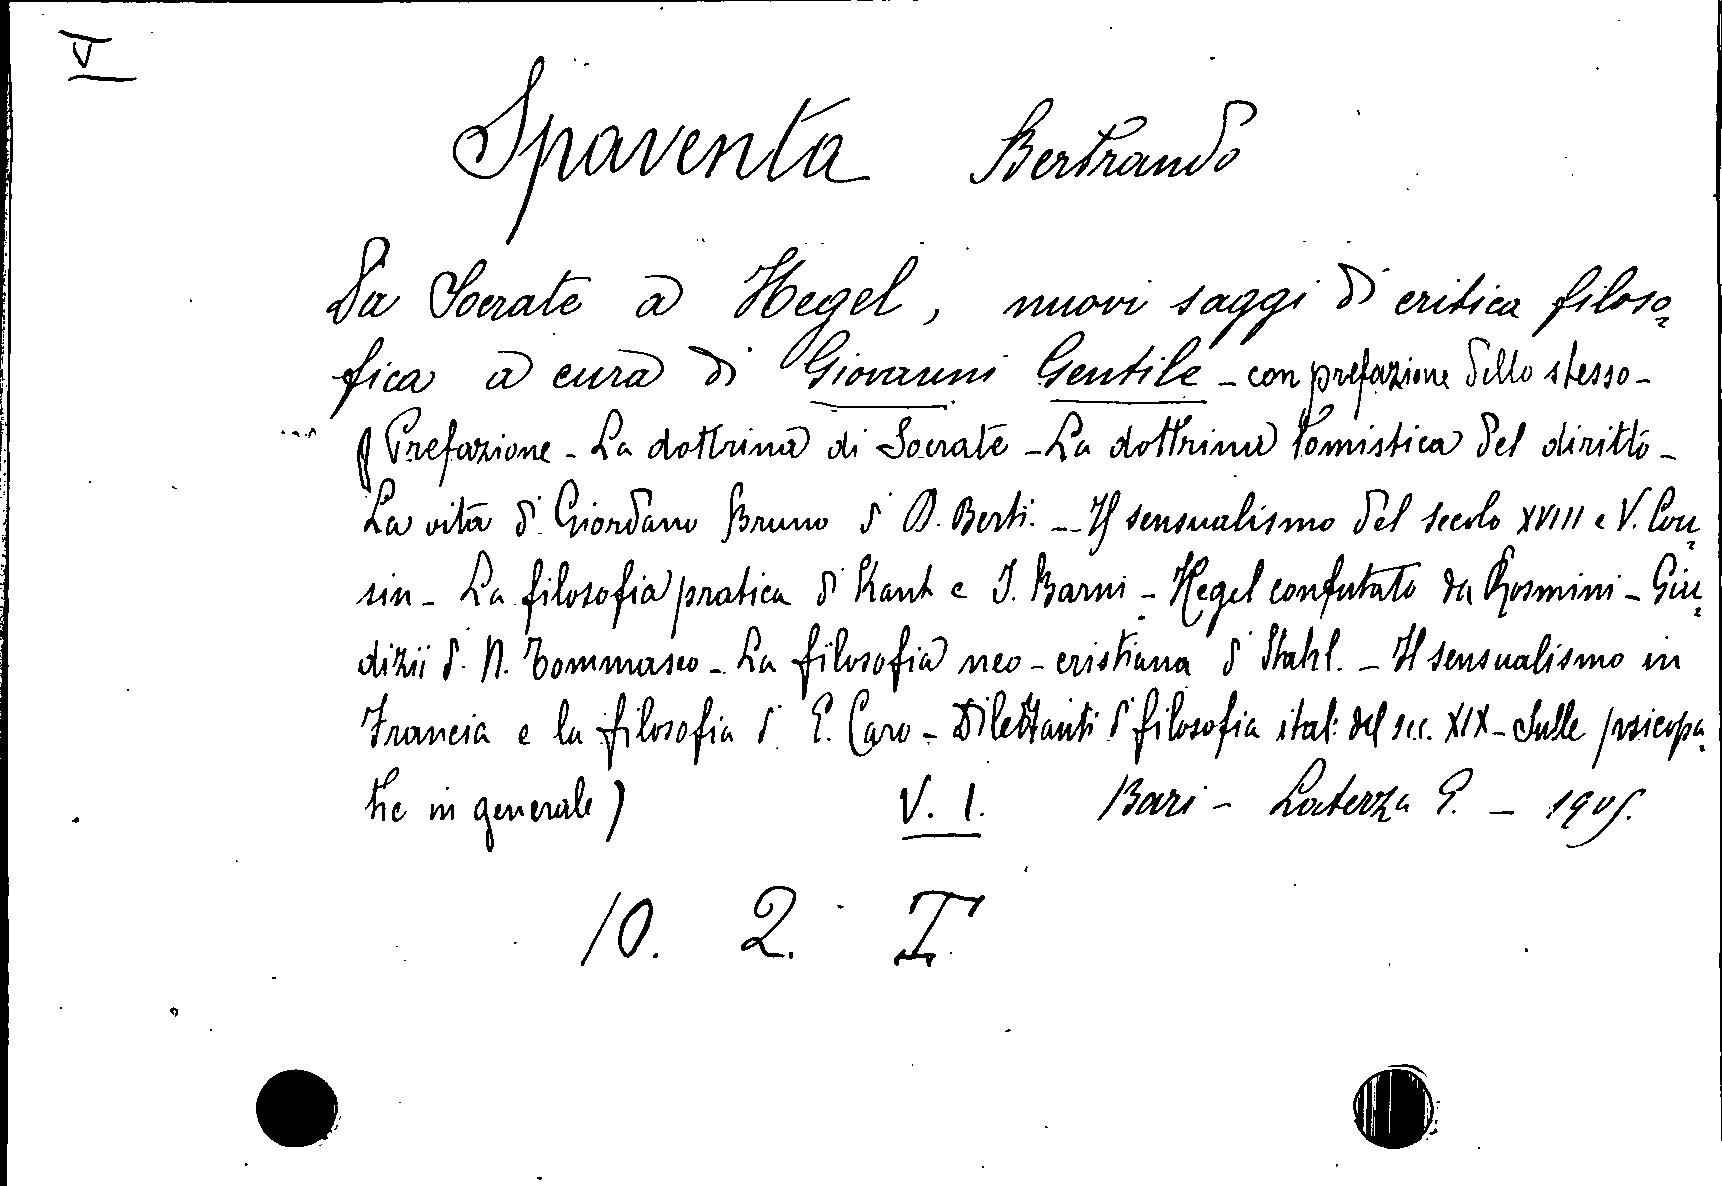 V
Spaventa Bertrando
Da Socrate a Hegel, nuovi saggi di critica filoso-
fica a cura di Giovanni Gentile - con prefazione dello stesso -
(Prefazione - La dottrina di Socrate - La dottrina tomistica del diritto -
La vita di Giordano Bruno di D. Berti. - Il sensualismo del secolo XVIII e V. Cou-
sin - La filosofia pratica di Kant e J. Barni - Hegel confutato da Rosmini - Giu-
dizii di N. Tommaseo - La filosofia neo-cristiana di Stahl. - Il sensualismo in
Francia e la filosofia di E. Caro - Dilettanti di filosofia ital: del sec. XIX - Sulle psicopa-
tie in generale)
V. 1. Bari - Laterza G. - 1905.
10. 2. I